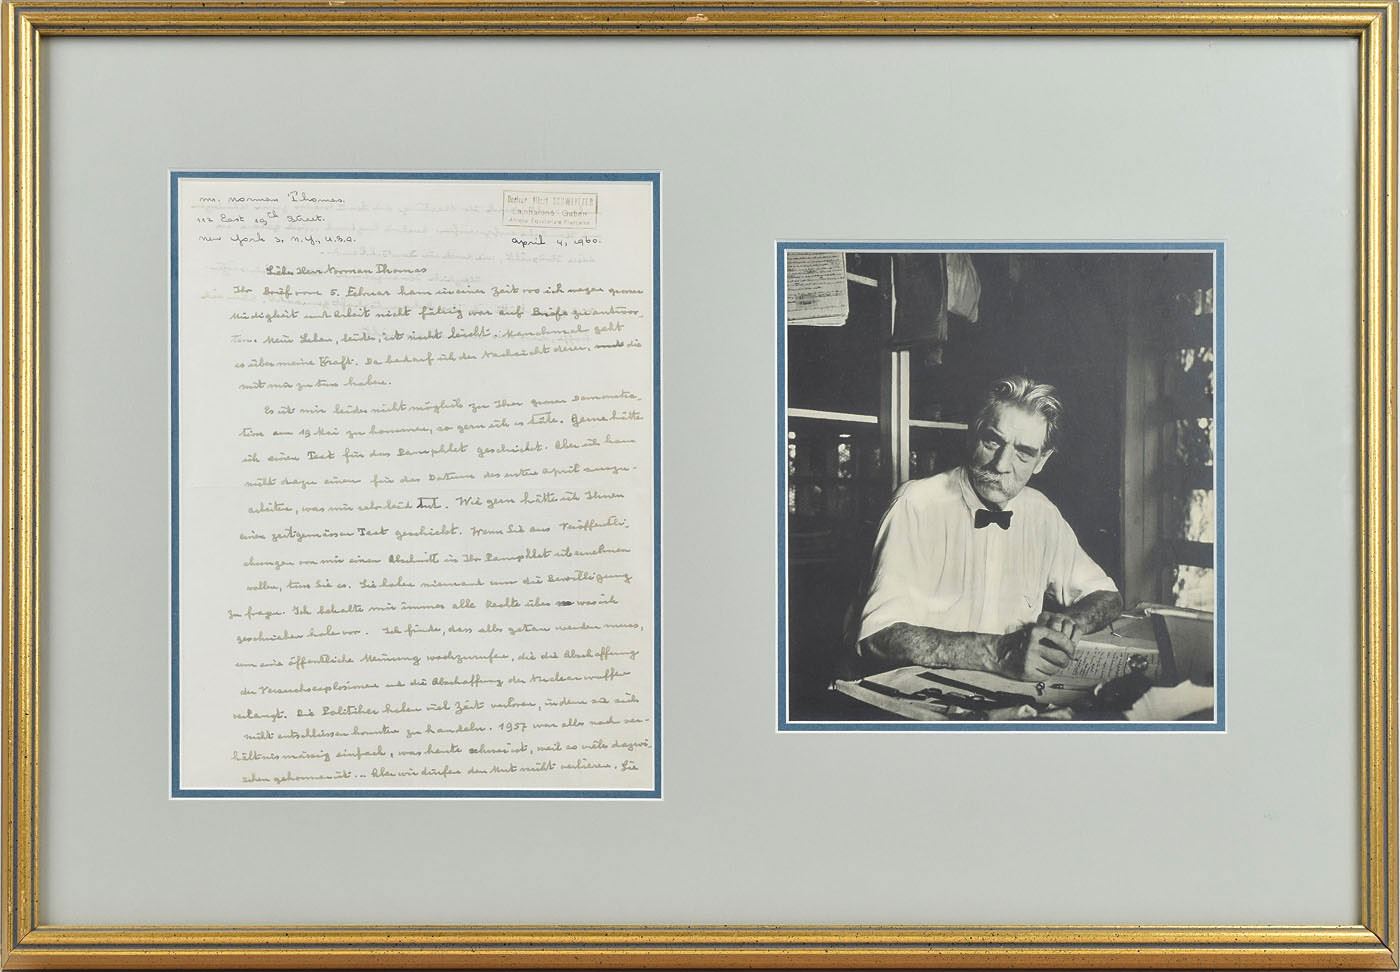 Mr. Norman Thomas.
112 East 19th Street.
New York 3, N.Y., U.S.A.
Docteur Albert SCHWEITZER
Lambaréné - Gabon
Afrique Equatoriale Française
April 4, 1960.
Lieber Herr Norman Thomas
Ihr Brief vom 5. Februar kam in einer Zeit wo ich wegen grosser
Müdigkeit und Arbeit nicht fähig war auf Briefe zu antwor-
ten. Mein Leben, leider, ist nicht leicht. Manchmal geht
es über meine Kraft. Da bedarf ich der Nachsicht derer, die
mit mir zu tun haben.
Es ist mir leider nicht möglich zu Ihrer grossen Demonstra-
tion am 19 Mai zu kommen, so gern ich es täte. Gerne hätte
ich einen Text für das Pamphlet geschickt. Aber ich kam
nicht dazu einen für das Datum des ersten April auszu-
arbeiten, was mir sehr leid tut. Wie gern hätte ich Ihnen
einen zeitgemässen Text geschickt. Wenn Sie aus Veröffentli-
chungen von mir einen Abschnitt in Ihr Pamphlet übernehmen
wollen, tun Sie es. Sie haben niemand um die Bewilligung
zu fragen. Ich behalte mir immer alle Rechte über was ich
geschrieben habe vor. Ich finde, dass alles getan werden muss,
um eine öffentliche Meinung wachzurufen, die die Abschaffung
der Versuchsexplosionen und die Abschaffung der Nuclearwaffen
verlangt. Die Politiker haben viel Zeit verloren, indem sie sich
nicht entschliessen konnten zu handeln. 1957 war alles noch ver-
hältnismässig einfach, was heute schwer ist, weil so viel dazwi-
schen gekommen ist ... Aber wir dürfen den Mut nicht verlieren. Sie